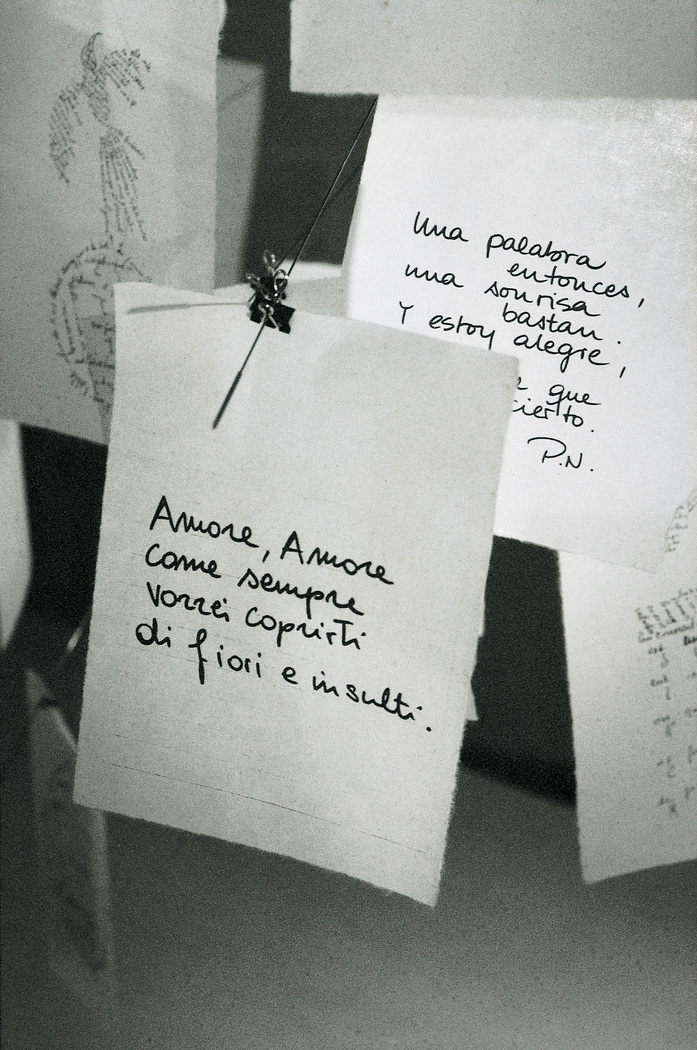 Una palabra
entonces,
una sonrisa
bastan.
Y estoy alegre,
que
cierto.
P.N.
Amore, Amore
come sempre
vorrei coprirti
di fiori e insulti.